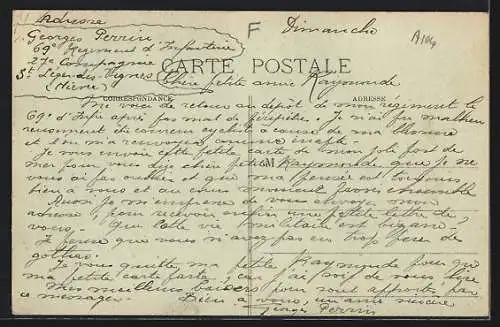 Adresse
Georges Perrin
69e Regiment d'Infanterie
27e Compagnie
St Léger des Vignes
(Nièvre)
F
Dimanche
A104
CARTE POSTALE
Chère petite amie Raymonde
CORRESPONDANCE
ADRESSE
Me voici de retour au dépôt de mon régiment le
69e d'Infie après pas mal de Je n'ai malheu
reusement été coureur cycliste à cause de ma blessure
et l'on m'a renvoyé comme inapte.
Je vous envoie cette petite carte de mon joli post de
M
mer pour vous dire chère petite Raymonde que je ne
vous ai pas oubliée et que ma pensée est toujours
bien à vous et au cours ensemble
Aussi je m'empresse de vous envoyer mon
adresse, pour recevoir enfin une petite lettre de
vous. Que cette vie militaire est
Je pense que vous n'avez pas eu trop peur des
gothas.
Je vous quitte, ma petite Raymonde pour que
ma petite carte parte, car ai soif de vous lire
Mes meilleurs baisers pour vous apportés par
ce messager. Bien à vous, un ami sincère
Georges Perrin